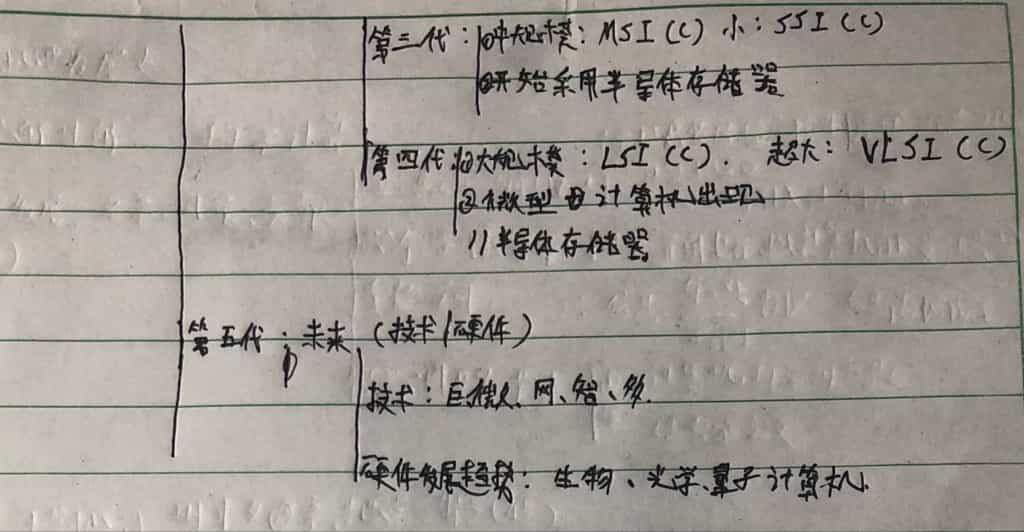 第三代：①中规模：MSI（C）小：SSI（C）
②开始采用半导体存储器
第四代：①大规模：LSI（C）．超大：VLSI（C）
②微型 计算机出现
// 半导体存储器
第五代：未来（技术/硬件）
技术：巨、微、网、智、多．
硬件发展趋势：生物、光学、量子计算机．